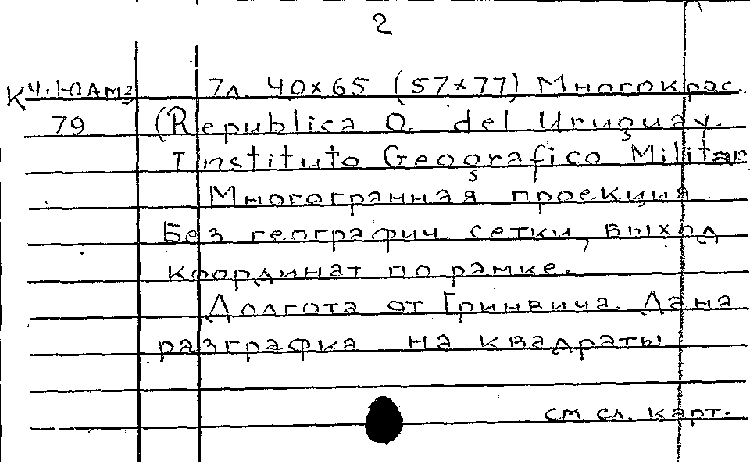 2
К Ч-ЮАм3 7л. 40×65 (57×77) Многокрас.
79 (Republica O. del Uruguay.
Instituto Geografico Militar
Многогранная проекция
Без географич сетки, выход
координат по рамке.
Долгота от Гринвича. Дана
разграфка на квадраты
см сл. карт.